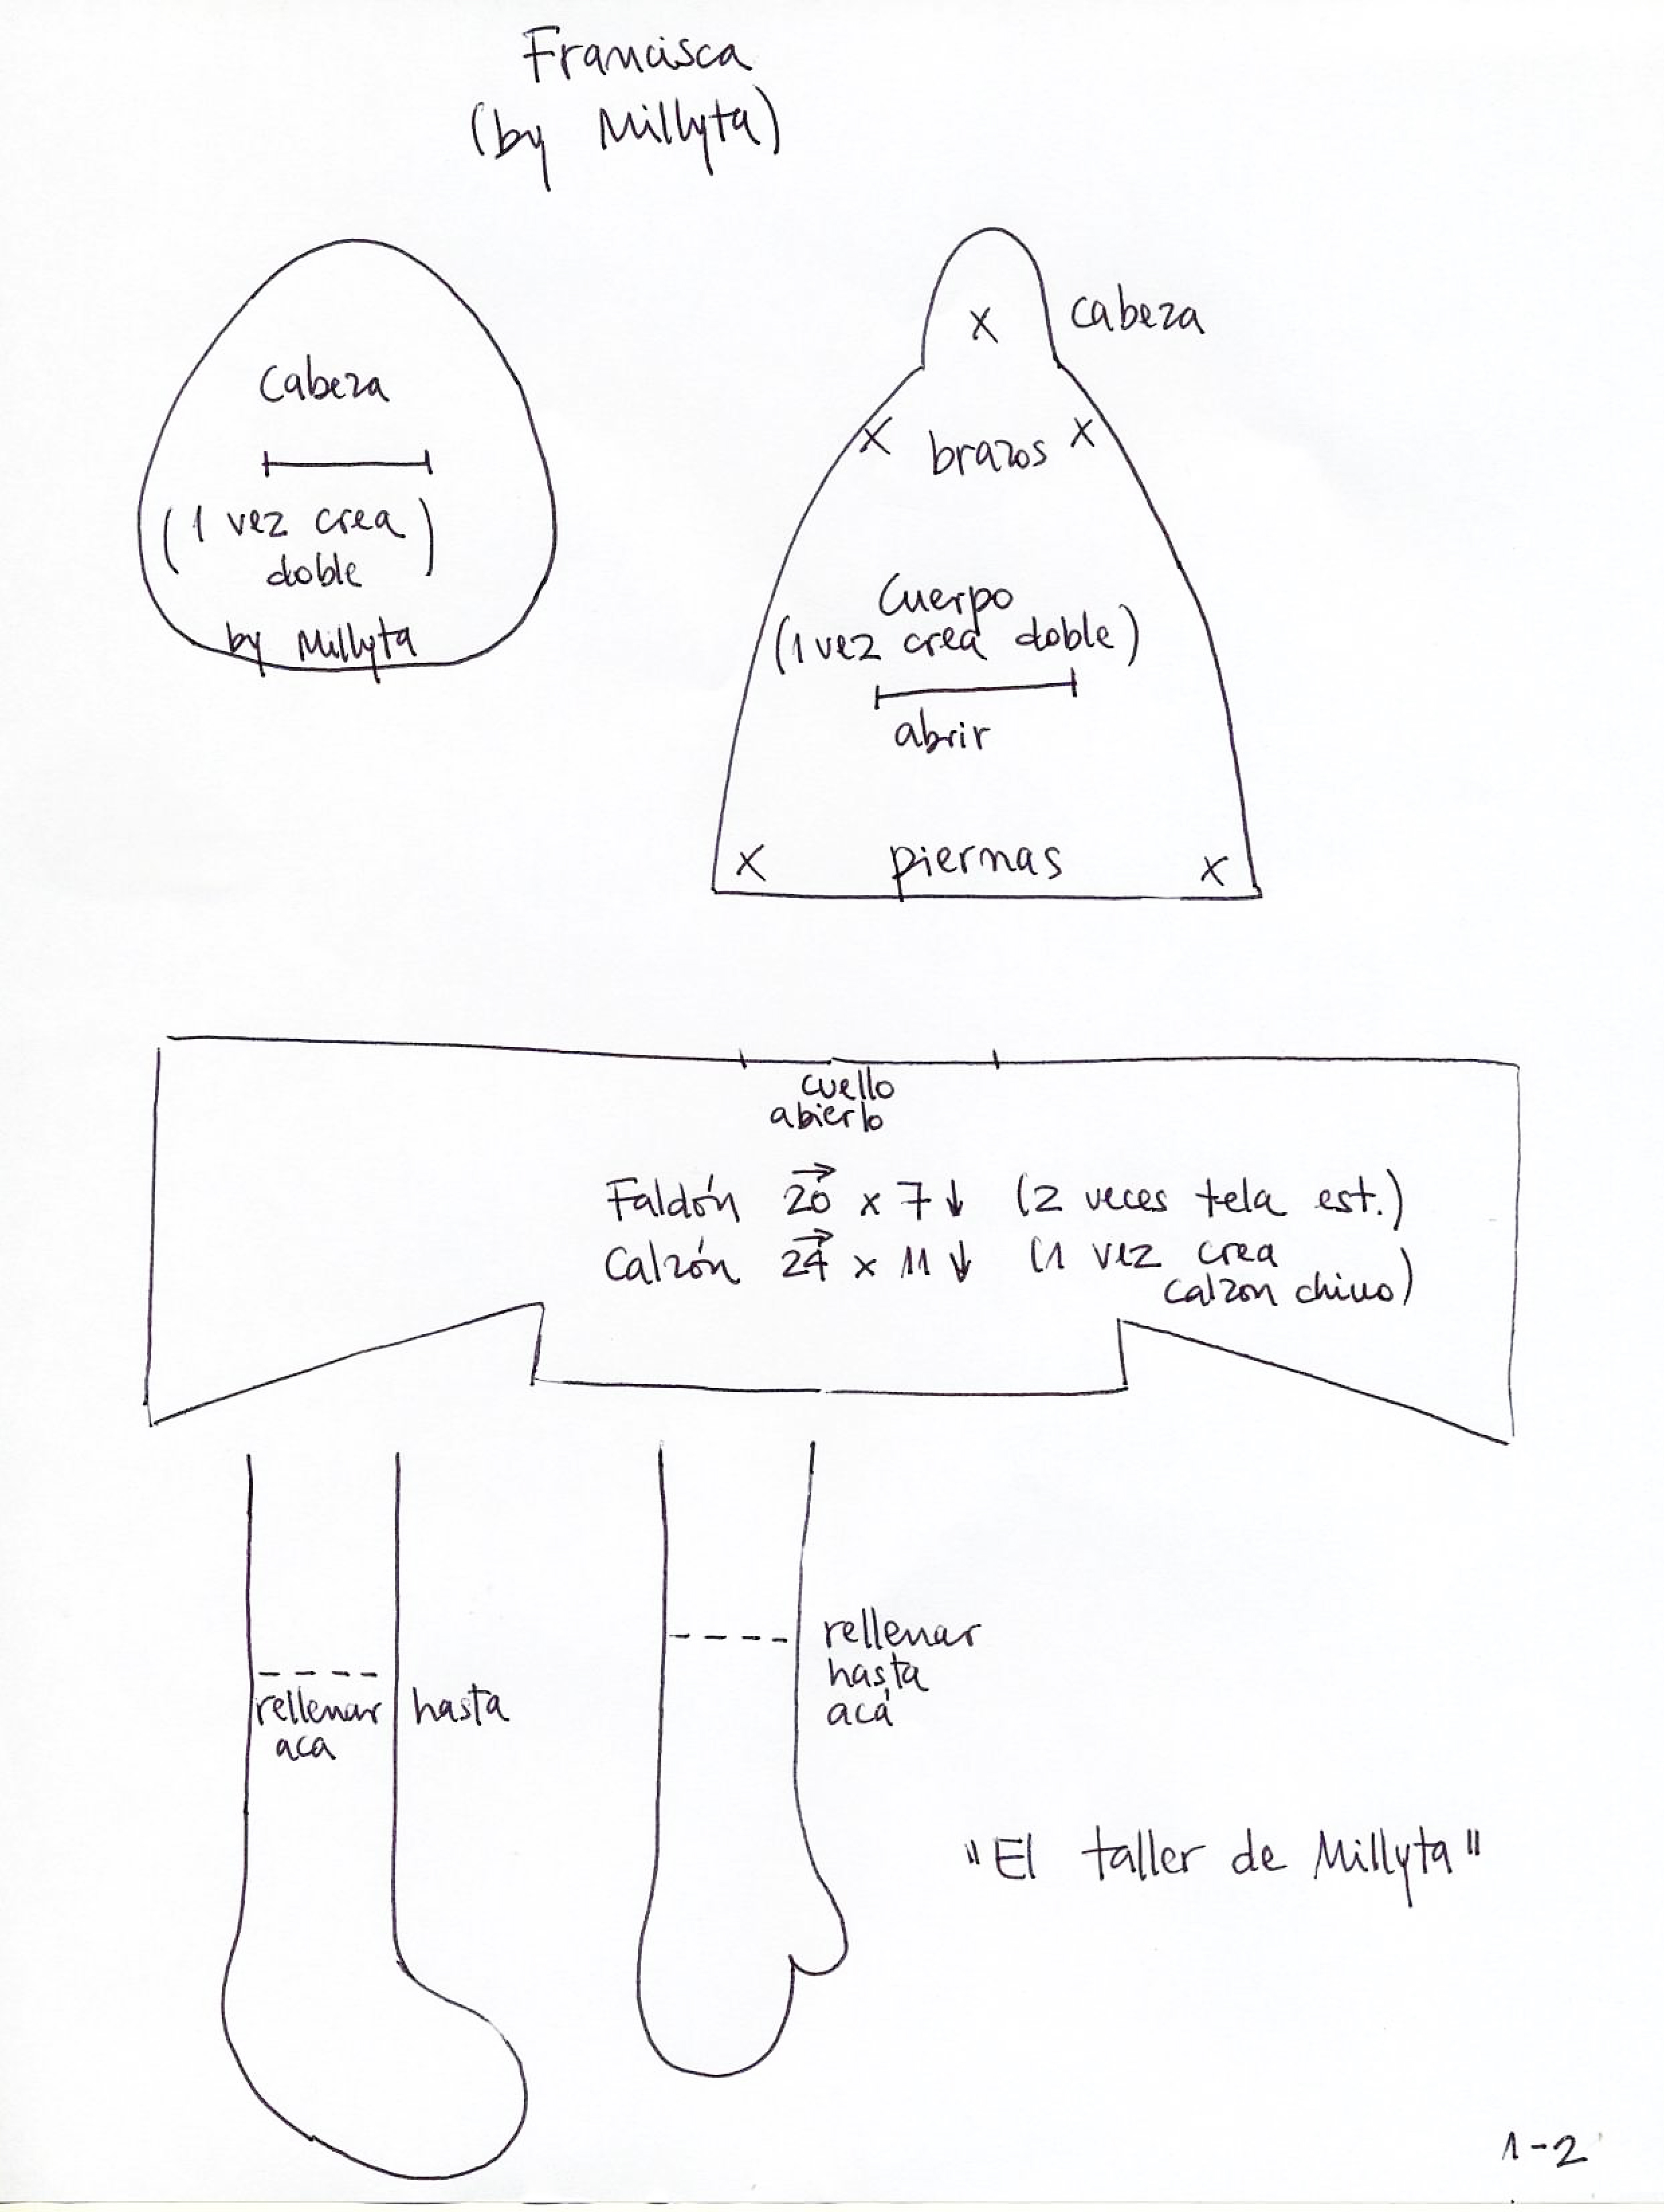 Francisca
(by Millyta)
Cabeza
(1 vez crea
doble)
by Millyta
X
cabeza
X brazos X
Cuerpo
(1 vez crea doble)
abrir
X piernas X
cuello
abierto
Faldón 20 x 7↓ (2 veces tela est.)
Calzón 24 x 11↓ (1 vez crea
calzon chino)
rellenar hasta
aca
rellenar
hasta
acá
"El taller de Millyta"
1-2